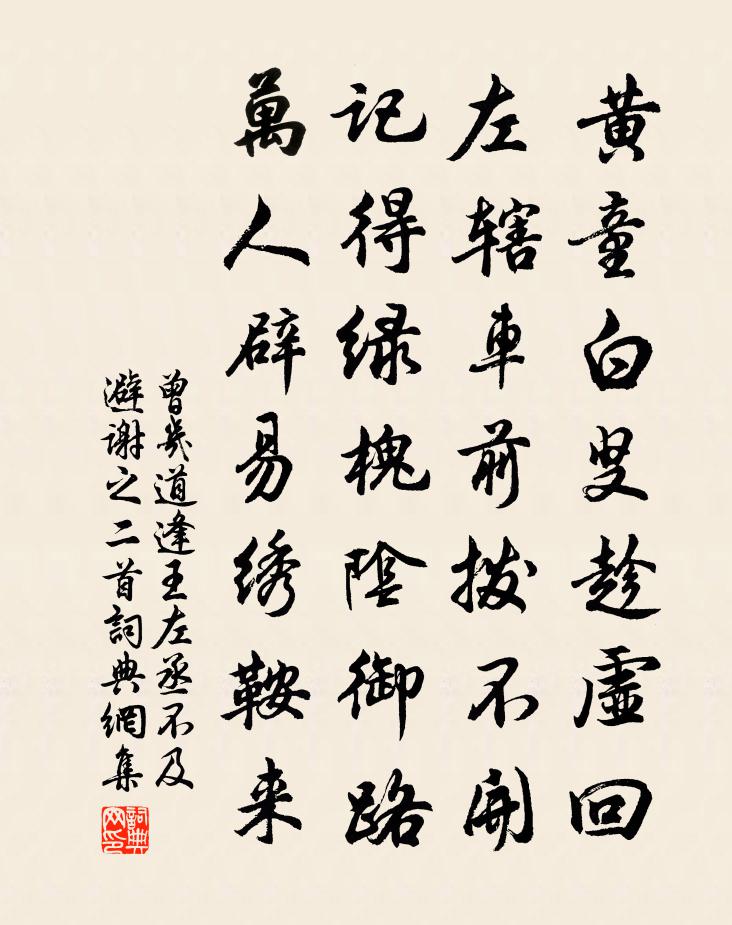 黄童白叟趁虚回
左辖車前拨不開
记得绿槐陰御路
萬人辟易绣鞍来
曾幾道逢王左丞不及
避謝之二首詞典網集
詞典网印